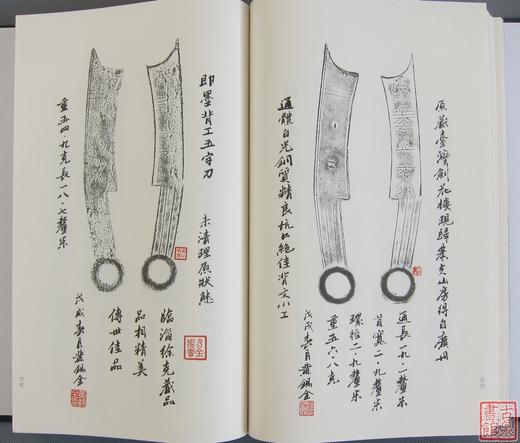 原藏臺灣劍花樓現歸
山房得自廣州
通長一九·一釐米
首寬二·九釐米
環徑二·九釐米
重五六·八克
戊戌春月黃錫全
通體白光銅質精良坑口絕佳背文小工
六六
即墨背工五字刀
未清理原狀態
臨淄徐克藏品
品相精美
傳世佳品
戊戌春月黃錫全
重五四·九克長一八·七釐米
六七
古泉書館